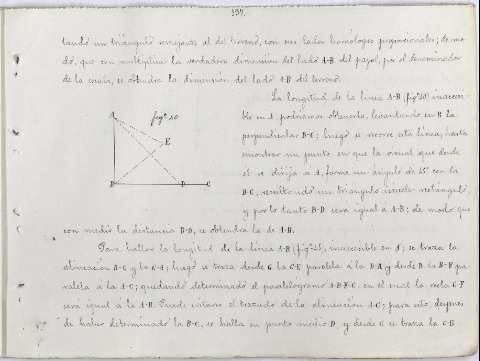 199.
tando un triángulo semejante al de terreno, con sus lados homólogos proporcionales; de mo-
do, que con multiplicar la verdadera dimension del lado A-B del papel, por el denominador
de la escala, se obtendra la dimensión del lado A-B del terreno.
La longitud de la línea A-B (figª 50) inaccesi-
ble en A, podriamos obtenerla, levantando en B la
perpendicular B-C; luego se recorre esta línea, hasta
encontrar un punto en que la visual que desde
él se dirija á A, forme un ángulo de 45° con la
B-C, resultando un triángulo isósceles rectángulo,
y por lo tanto B-D será igual á A-B; de modo que
con medir la distancia B-D, se obtendra la de A-B.
Para hallar la longitud de la línea A-B (figª 51), inaccesible en A; se traza la
alineación A-C y la C-A; luego se traza desde C la C-E paralela á la D-A y desde B la B-F pa-
ralela á la A-C; quedando determinado el paralelógramo A-B-F-C, en el cual la recta C-F
será igual á la A-B. Puede evitarse el trazado de la alineación A-C; para esto, despues
de haber determinado la B-C, se halla su punto medio D, y desde C se traza la C-E
A
figª 50
E
B
D
C